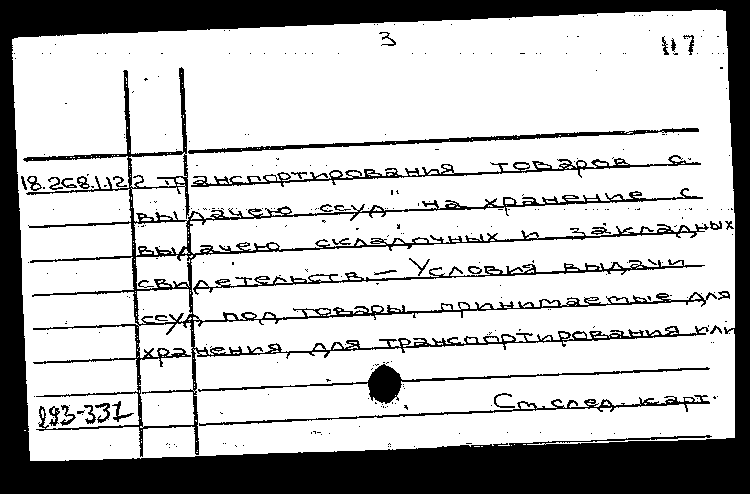 3
117
18.268.1.122 транспортирования товаров с
выдачею ссуд" на хранение с
выдачею складочных и закладных
свидетельств. – Условия выдачи
ссуд под товары, принимаемые для
хранения, для транспортирования или
293-331
См. след. карт.